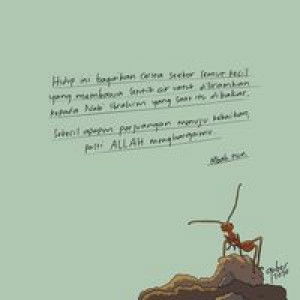 Hidup ini bagaikan cerita seekor semut kecil
yang membawa setitik air untuk disiramkan
kepada Nabi Ibrahim yang saat itu dibakar.
Sekecil apapun perjuangan menuju kebaikan,
pasti ALLAH menghargainya.